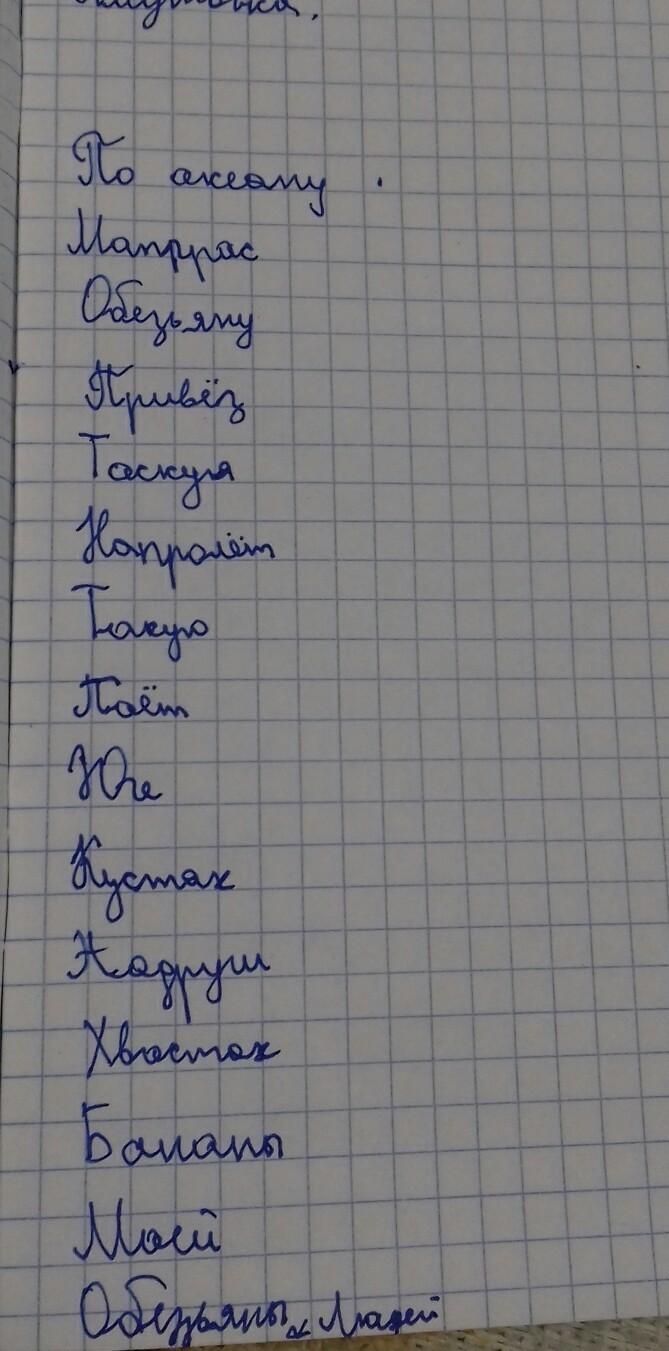 По океану .
Матррас
Обезьяну
Привёз
Таскуя
Напролёт
Такую
Поёт
Юге
Кустах
Хвостах
Бананы
Моей
Обезьяны и Людей